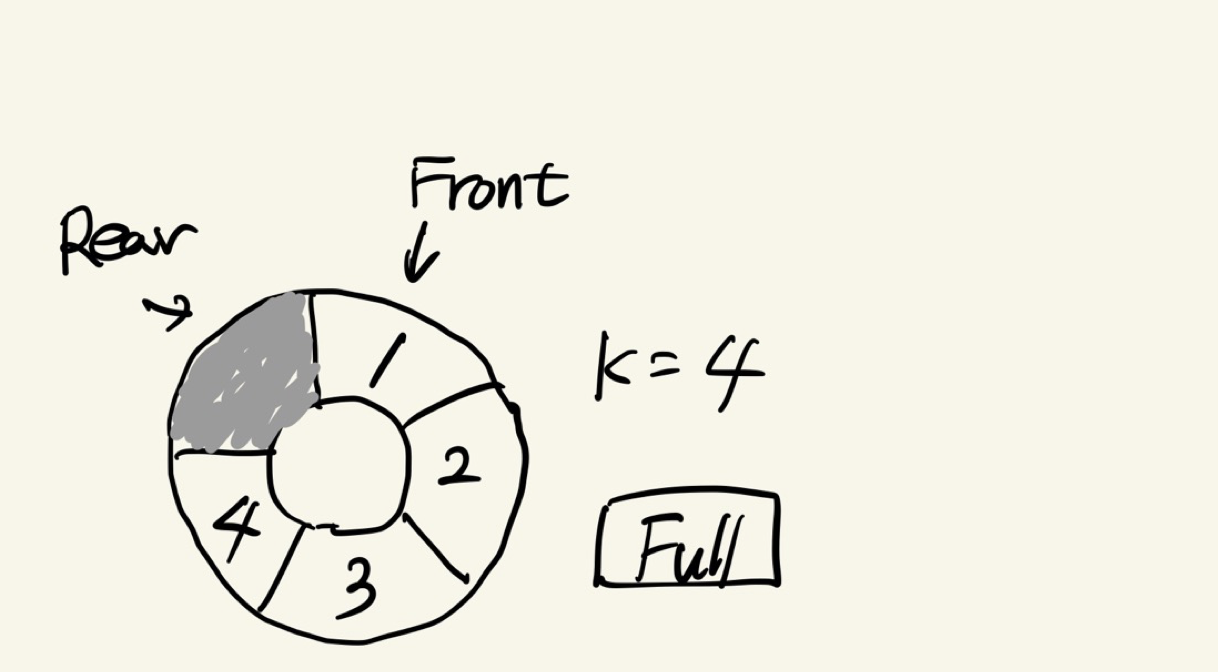 Front
Rear
1
2
3
4
k = 4
Full